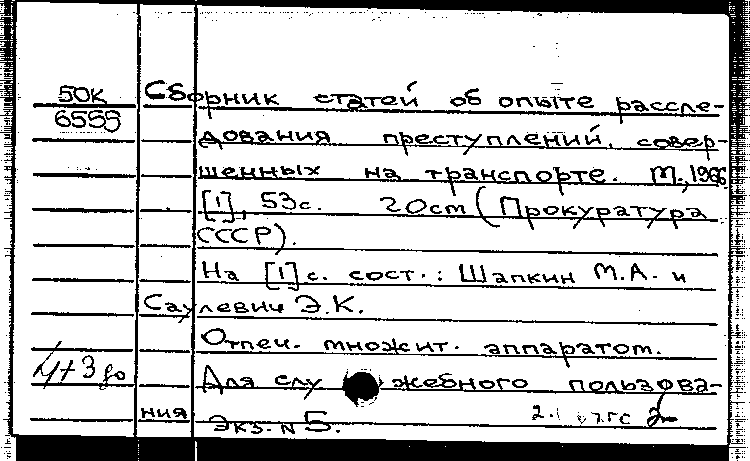 50К
6555
Сборник статей об опыте рассле-
дования преступлений, совер-
шенных на транспорте. М., 1966
[1], 53с. 20см (Прокуратура
СССР).
На [1] с. сост.: Шапкин М.А. и
Саулевич Э.К.
Отпеч. множит. аппаратом.
Для служебного пользова-
ния
Экз. N 5.